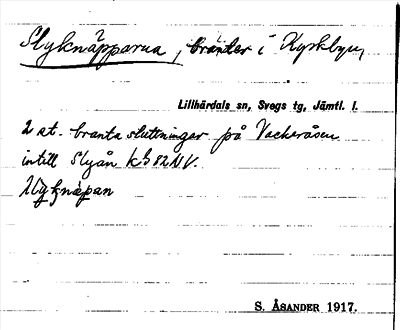 Slyknäpparna, bränter i Kyrkbyn,
Lillhärdals sn, Svegs tg, Jämtl. l.
2 st. branta sluttningar på Vackeråsen
intill Slyån kb 82 NV.
Slyknäpan
S. ÅSANDER 1917.